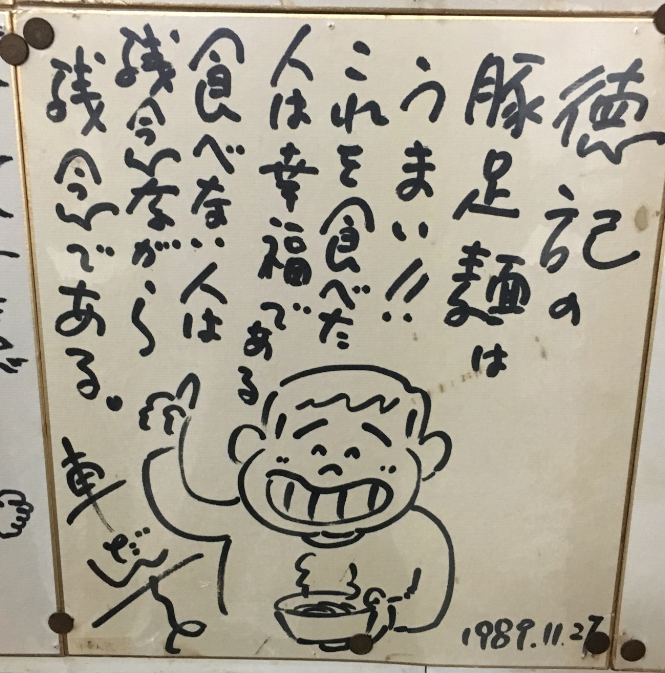 徳記の
豚足麺は
うまい!!
これを食べた
人は幸福である
食べない人は
残念ながら
残念である。
車だん吉
1989.11.27